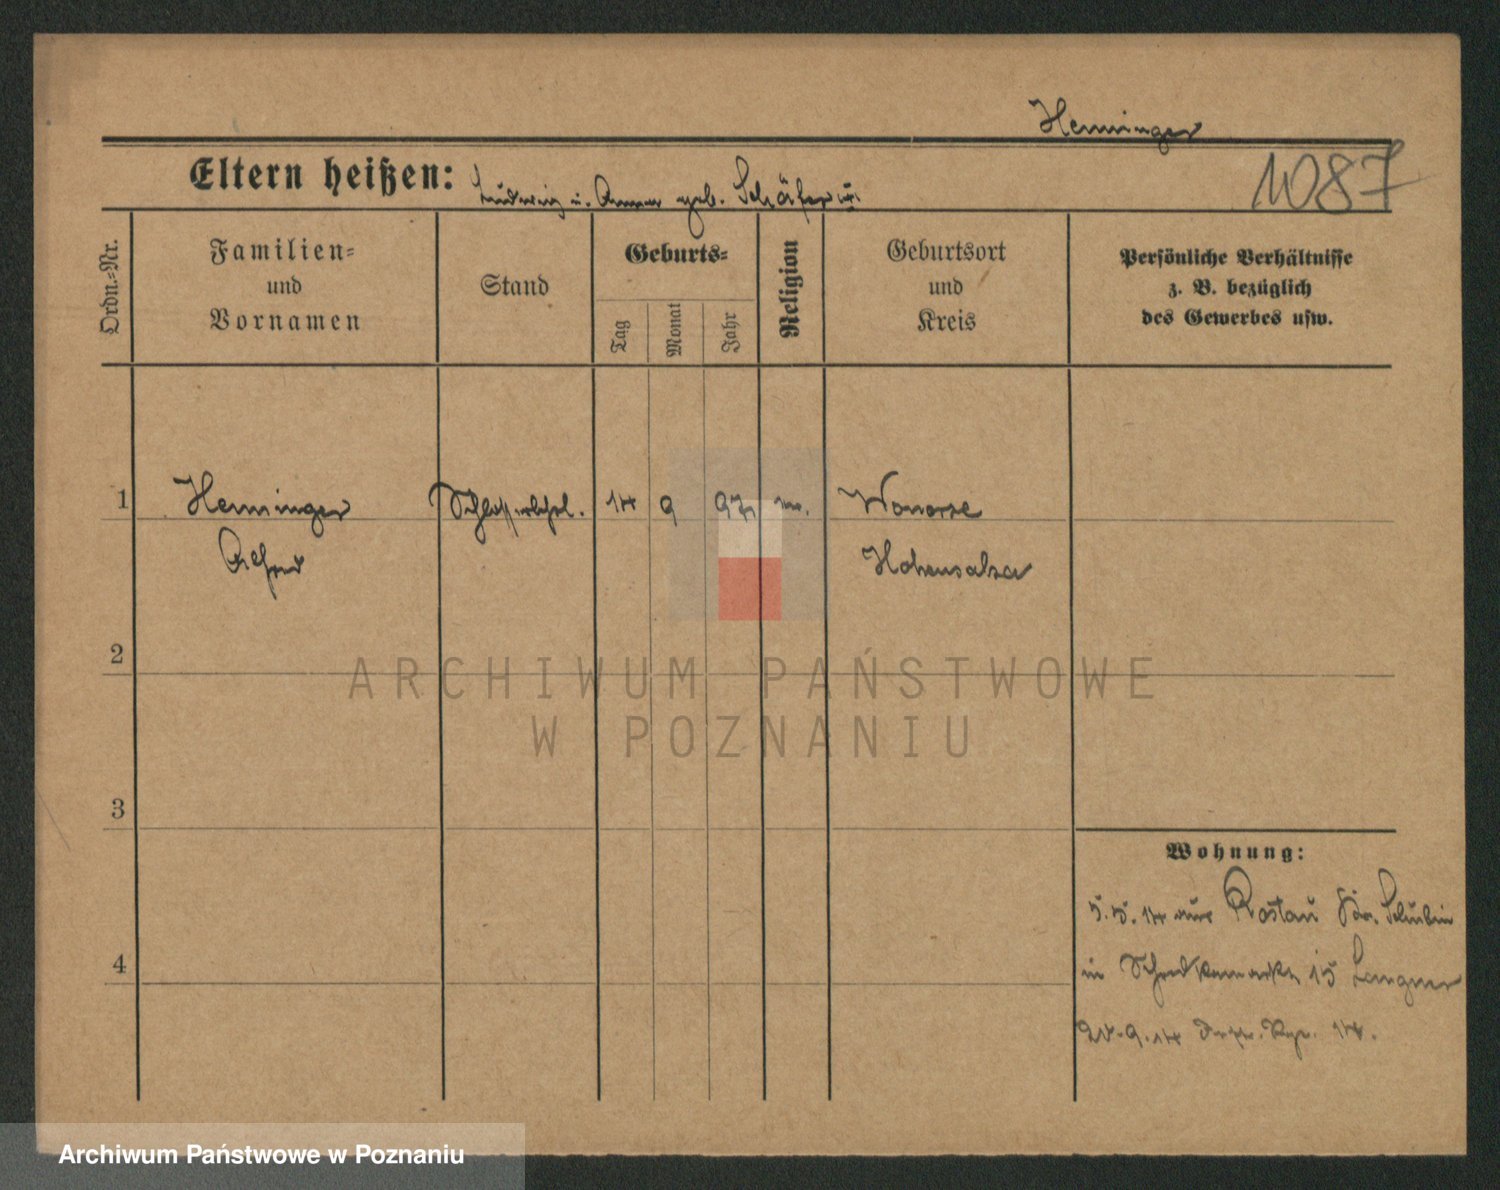 Henninger
1087
Eltern heißen: Ludwig u. Anna geb. Schäfer
Ordn.=Nr.
Familien=
und
Vornamen
Stand
Geburts=
Tag
Monat
Jahr
Religion
Geburtsort
und
Kreis
Persönliche Verhältnisse
z. B. bezüglich
des Gewerbes usw.
1
Henninger
Alfred
14 9 97
Wonorze
Hohensalza
2
ARCHIWUM PAŃSTWOWE
W POZNANIU
3
Wohnung:
5.5.14 aus Rostau Schubin
in 15 Langner
4
20.9.14 14.
Archiwum Państwowe w Poznaniu